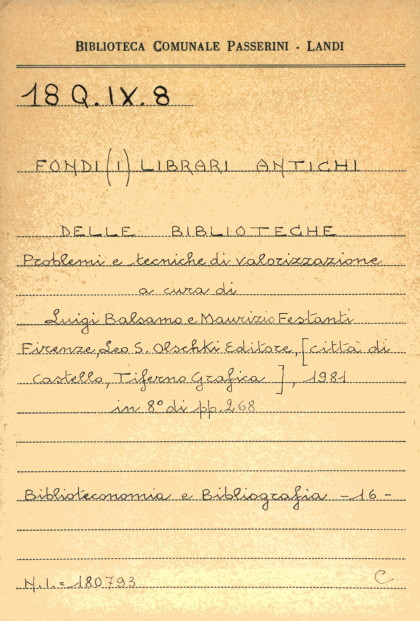 BIBLIOTECA COMUNALE PASSERINI - LANDI
18 Q.IX.8
FONDI (I) LIBRARI ANTICHI
DELLE BIBLIOTECHE
Problemi e tecniche di valorizzazione
a cura di
Luigi Balsamo e Maurizio Festanti
Firenze, Leo S. Olschki Editore, [città di
Castello, Tiferno Grafica ], 1981
in 8° di pp. 268
Biblioteconomia e Bibliografia -16-
N.I.= 180793 C